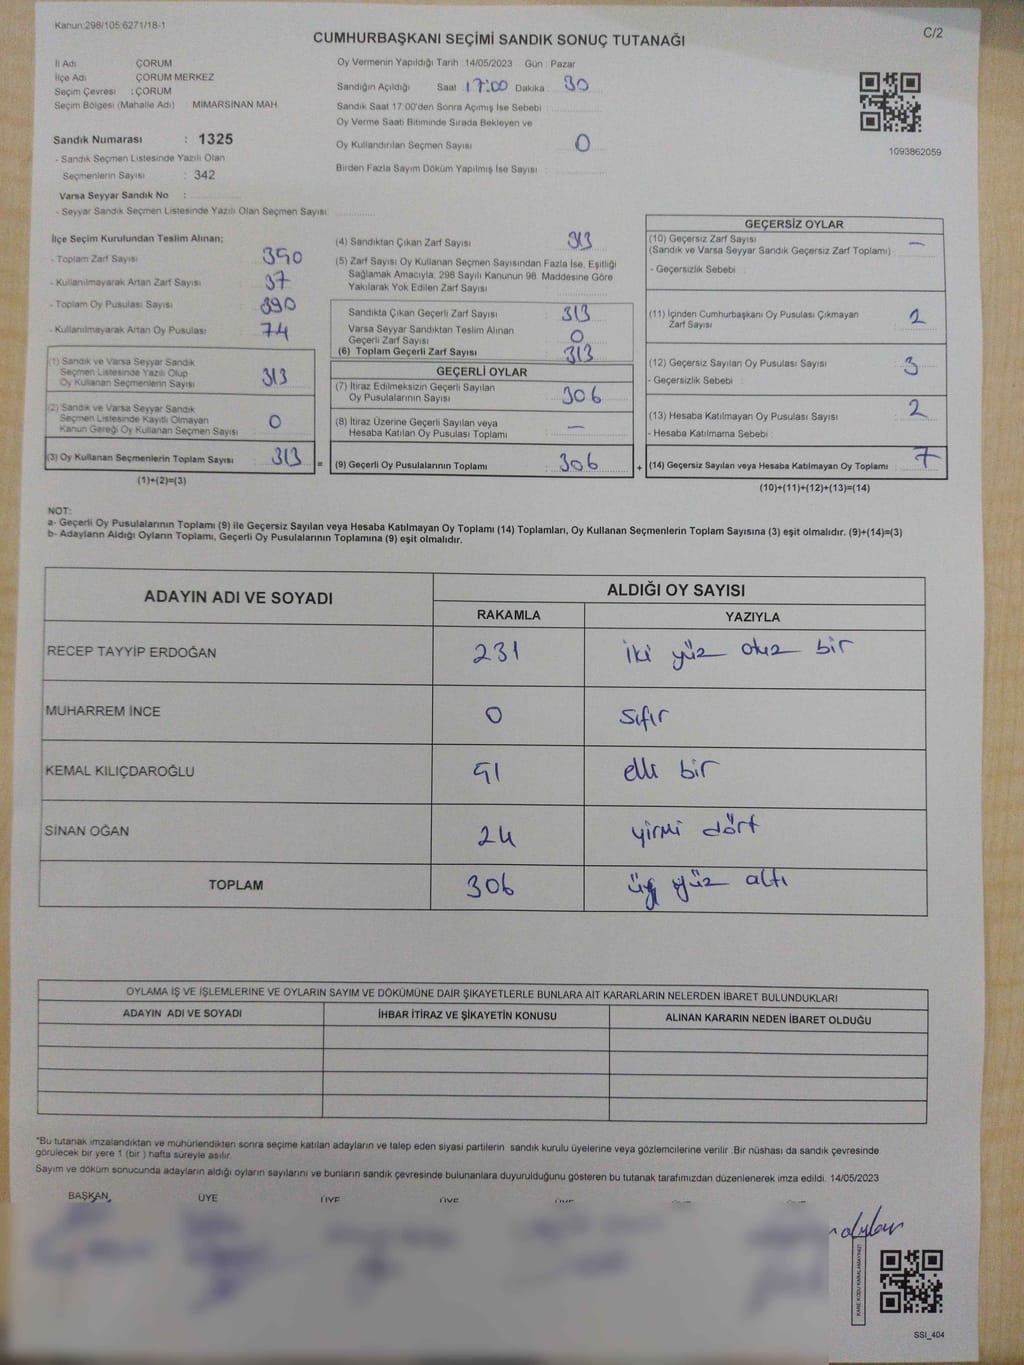 Kanun:298/105;6271/18-1
C/2
CUMHURBAŞKANI SEÇİMİ SANDIK SONUÇ TUTANAĞI
İl Adı ÇORUM
İlçe Adı ÇORUM MERKEZ
Seçim Çevresi : ÇORUM
Seçim Bölgesi (Mahalle Adı) : MİMARSİNAN MAH.
Sandık Numarası : 1325
- Sandık Seçmen Listesinde Yazılı Olan
Seçmenlerin Sayısı : 342
Varsa Seyyar Sandık No :
- Seyyar Sandık Seçmen Listesinde Yazılı Olan Seçmen Sayısı:
Oy Vermenin Yapıldığı Tarih :14/05/2023 Gün : Pazar
Sandığın Açıldığı Saat 17:00 Dakika : 30
Sandık Saat 17:00'den Sonra Açımış İse Sebebi :
Oy Verme Saati Bitiminde Sırada Bekleyen ve
Oy Kullandırılan Seçmen Sayısı : 0
Birden Fazla Sayım Döküm Yapılmış İse Sayısı :
1093862059
İlçe Seçim Kurulundan Teslim Alınan;
- Toplam Zarf Sayısı : 350
- Kullanılmayarak Artan Zarf Sayısı : 37
- Toplam Oy Pusulası Sayısı : 390
- Kullanılmayarak Artan Oy Pusulası : 74
(1) Sandık ve Varsa Seyyar Sandık
Seçmen Listesinde Yazılı Olup
Oy Kullanan Seçmenlerin Sayısı : 313
(2) Sandık ve Varsa Seyyar Sandık
Seçmen Listesinde Kayıtlı Olmayan
Kanun Gereği Oy Kullanan Seçmen Sayısı : 0
(3) Oy Kullanan Seçmenlerin Toplam Sayısı : 313
(1)+(2)=(3)
(4) Sandıktan Çıkan Zarf Sayısı : 313
(5) Zarf Sayısı Oy Kullanan Seçmen Sayısından Fazla İse, Eşitliği
Sağlamak Amacıyla, 298 Sayılı Kanunun 98. Maddesine Göre
Yakılarak Yok Edilen Zarf Sayısı :
Sandıkta Çıkan Geçerli Zarf Sayısı : 313
Varsa Seyyar Sandıktan Teslim Alınan
Geçerli Zarf Sayısı : 0
(6) Toplam Geçerli Zarf Sayısı : 313
GEÇERLİ OYLAR
(7) İtiraz Edilmeksizin Geçerli Sayılan
Oy Pusulalarının Sayısı : 306
(8) İtiraz Üzerine Geçerli Sayılan veya
Hesaba Katılan Oy Pusulası Toplamı : —
= (9) Geçerli Oy Pusulalarının Toplamı : 306 +
GEÇERSİZ OYLAR
(10) Geçersiz Zarf Sayısı : —
(Sandık ve Varsa Seyyar Sandık Geçersiz Zarf Toplamı)
- Geçersizlik Sebebi :
(11) İçinden Cumhurbaşkanı Oy Pusulası Çıkmayan
Zarf Sayısı : 2
(12) Geçersiz Sayılan Oy Pusulası Sayısı : 3
- Geçersizlik Sebebi :
(13) Hesaba Katılmayan Oy Pusulası Sayısı : 2
- Hesaba Katılmama Sebebi :
(14) Geçersiz Sayılan veya Hesaba Katılmayan Oy Toplamı : 7
(10)+(11)+(12)+(13)=(14)
NOT:
a- Geçerli Oy Pusulalarının Toplamı (9) ile Geçersiz Sayılan veya Hesaba Katılmayan Oy Toplamı (14) Toplamları, Oy Kullanan Seçmenlerin Toplam Sayısına (3) eşit olmalıdır. (9)+(14)=(3)
b- Adayların Aldığı Oyların Toplamı, Geçerli Oy Pusulalarının Toplamına (9) eşit olmalıdır.
ADAYIN ADI VE SOYADI ALDIĞI OY SAYISI
RAKAMLA YAZIYLA
RECEP TAYYİP ERDOĞAN 231 iki yüz otuz bir
MUHARREM İNCE 0 sıfır
KEMAL KILIÇDAROĞLU 51 elli bir
SİNAN OĞAN 24 yirmi dört
TOPLAM 306 üç yüz altı
OYLAMA İŞ VE İŞLEMLERİNE VE OYLARIN SAYIM VE DÖKÜMÜNE DAİR ŞİKAYETLERLE BUNLARA AİT KARARLARIN NELERDEN İBARET BULUNDUKLARI
ADAYIN ADI VE SOYADI İHBAR İTİRAZ VE ŞİKAYETİN KONUSU ALINAN KARARIN NEDEN İBARET OLDUĞU
"Bu tutanak imzalandıktan ve mühürlendikten sonra seçime katılan adayların ve talep eden siyasi partilerin sandık kurulu üyelerine veya gözlemcilerine verilir .Bir nüshası da sandık çevresinde
görülecek bir yere 1 (bir ) hafta süreyle asılır.
Sayım ve döküm sonucunda adayların aldığı oyların sayılarını ve bunların sandık çevresinde bulunanlara duyurulduğunu gösteren bu tutanak tarafımızdan düzenlenerek imza edildi. 14/05/2023
BAŞKAN ÜYE ÜYE ÜYE
KARE KODU KARALAMAYINIZ!
SSI_404